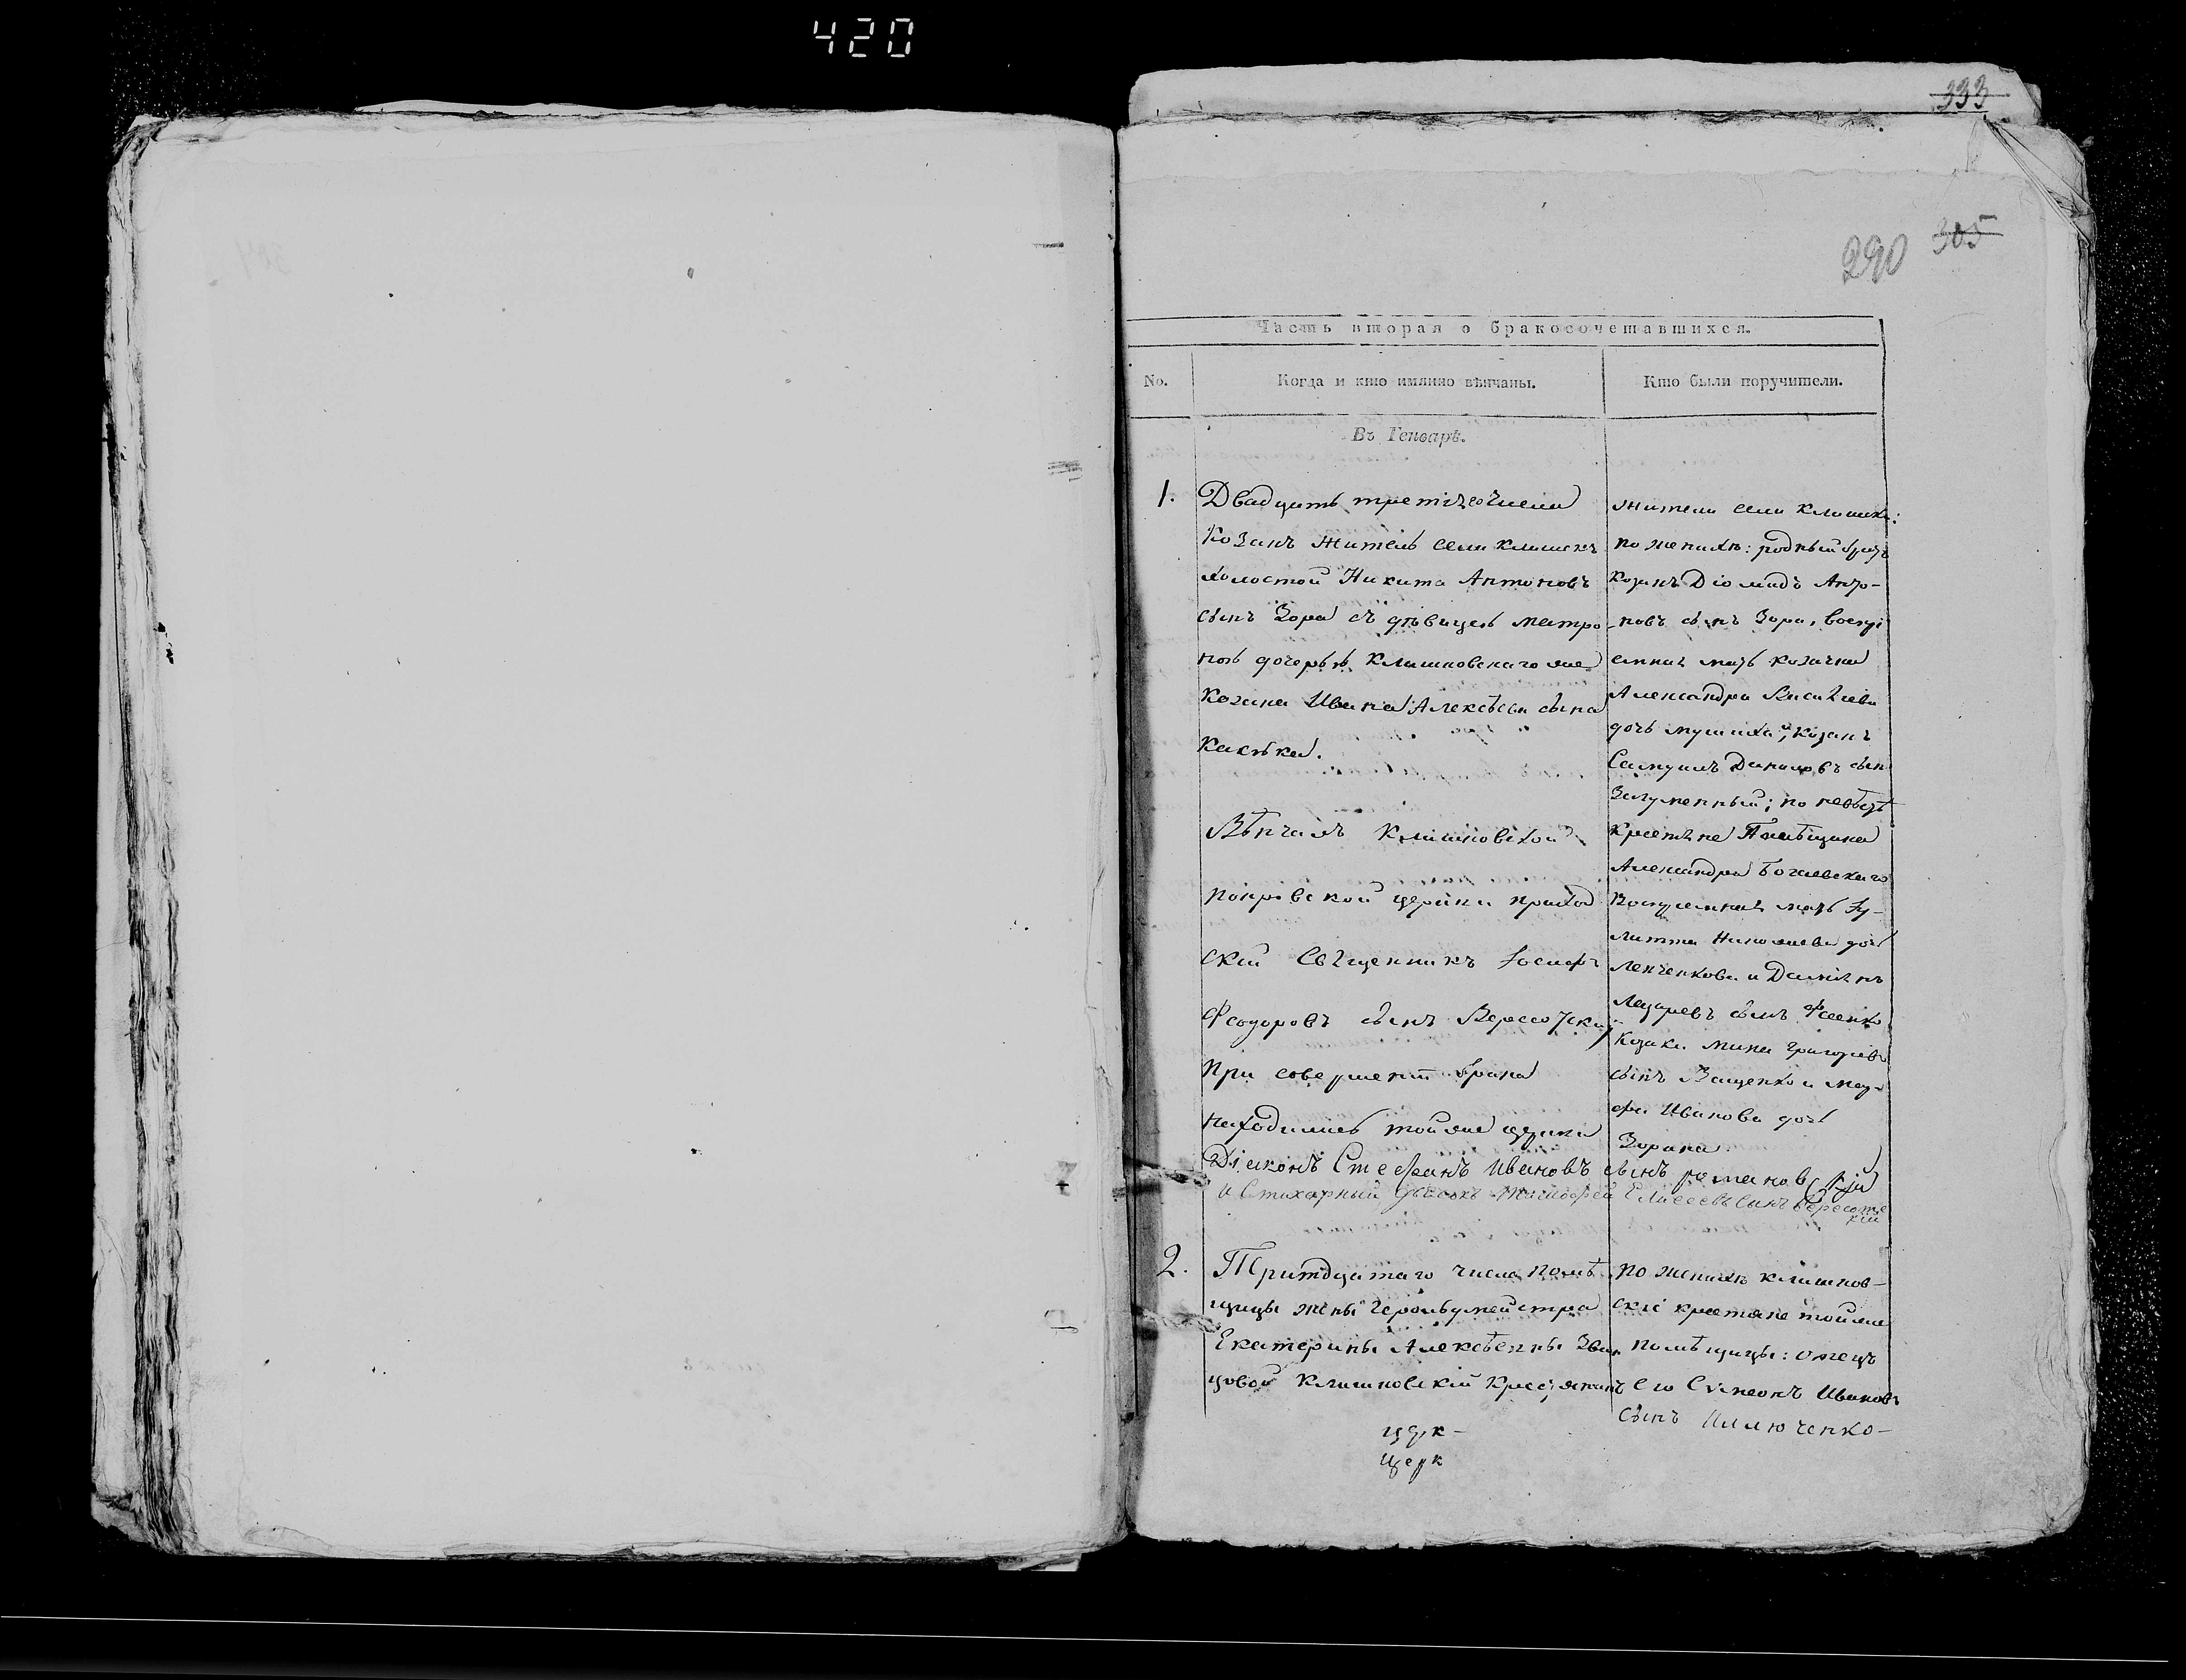 420
333
290 305
Часть вторая о бракосочетавшихся.
No.
Когда и кто имянно вѣнчаны.
Кто были поручители.
Въ Генварѣ.
1.
Двадцать третяго числа
Козакъ житель села клишекъ
холостой Никита Антоновъ
сынъ Зора съ дѣвицею матро
ною дочерью клишковскаго же
козака Ивана Алексѣева сына
Вѣнчалъ клишковской
покровской церкви приход
скій Священникъ Іосифъ
Феодоровъ сынъ Вересотскій
При совершеніи брака
находились тойже церкви
Діаконъ Стефанъ Ивановъ сынъ романовскій
и Стихарный дьячокъ Тимофей Елисеевъ сынъ Вересотс
кій
жители села клишекъ:
по женихѣ: родный братъ
козакъ Діомидъ Анто-
новъ сынъ Зора, воспрі
емная мать козачка
Александра
дочь козакъ
Самуилъ Даниловъ сын
по невѣстѣ
крестяне Помѣщика
Александра
Воспріемная мать Іу-
литта Николаева дочь
Ленченкова и Даміянъ
Лазаревъ сынъ
козаки Мина Григорьевъ
сынъ Ващенко и мар-
фа Иванова дочь
Зорина.
2.
Тритдцатаго числа помѣ
щицы жены
Екатерины Алексѣевны
цовой клишковскій крестянинъ
по женихѣ клишков-
скіе крестяне тойже
помѣщицы: отецъ
его Сѵмеонъ Ивановъ
сынъ Илюченко-
церк-
Церк